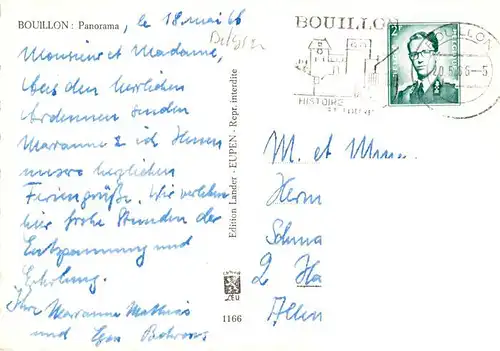 BOUILLON : Panorama
, le 18 mai 66
Belgien
Monsieur et Madame,
Aus den herrlichen
Ardennen senden
Marianne & ich Ihnen
unsere herzlichen
Feriengrüße. Wir verleben
hier frohe Stunden der
Entspannung und
Erholung.
Ihre Marianne Mathies
und Egon
Edition Lander - EUPEN - Repr. interdite
1166
BOUILLON
HISTOIRE
2
BOUILLON
M. et Mme.
Herrn
2 Ha